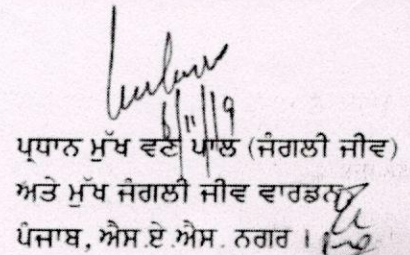 6/11/19
ਪ੍ਰਧਾਨ ਮੁੱਖ ਵਣ ਪਾਲ (ਜੰਗਲੀ ਜੀਵ)
ਅਤੇ ਮੁੱਖ ਜੰਗਲੀ ਜੀਵ ਵਾਰਡਨ
ਪੰਜਾਬ, ਐਸ.ਏ.ਐਸ. ਨਗਰ ।